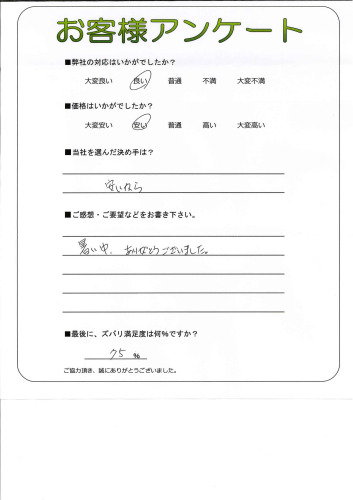 お客様アンケート
■弊社の対応はいかがでしたか?
大変良い 良い 普通 不満 大変不満
■価格はいかがでしたか?
大変安い 安い 普通 高い 大変高い
■当社を選んだ決め手は?
安いから
■ご感想・ご要望などをお書き下さい。
暑い中、ありがとうございました。
■最後に、ズバリ満足度は何%ですか?
75 %
ご協力頂き、誠にありがとうございました。